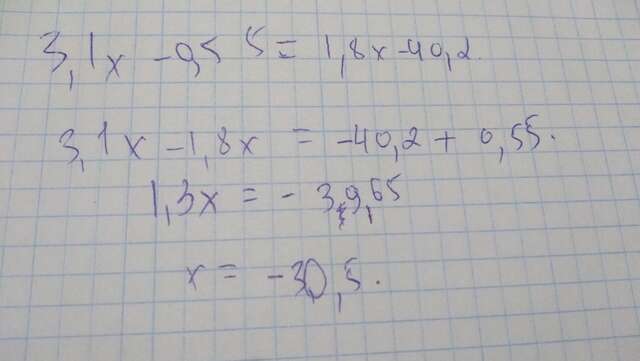 3,1x - 0,55 = 1,8x - 40,2.
3,1x - 1,8x = -40,2 + 0,55.
1,3x = - 39,65
x = -30,5.